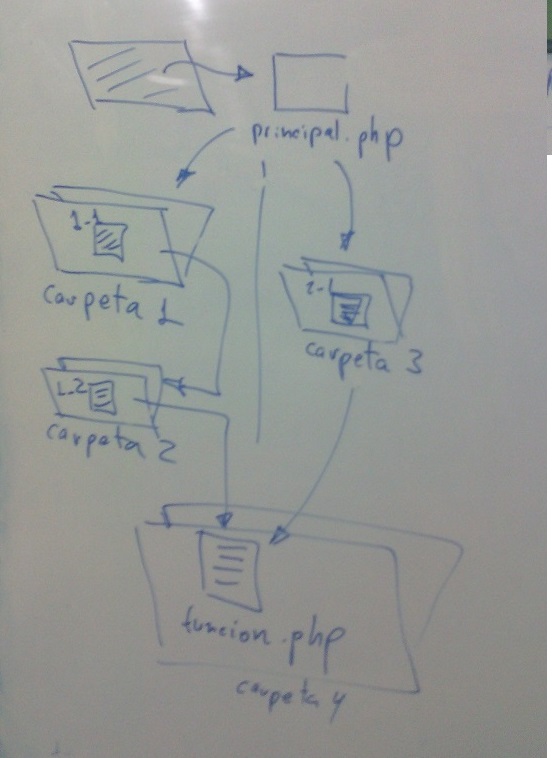 principal.php
1-1
carpeta 1
2-1
carpeta 3
1-2
carpeta 2
funcion.php
carpeta 4